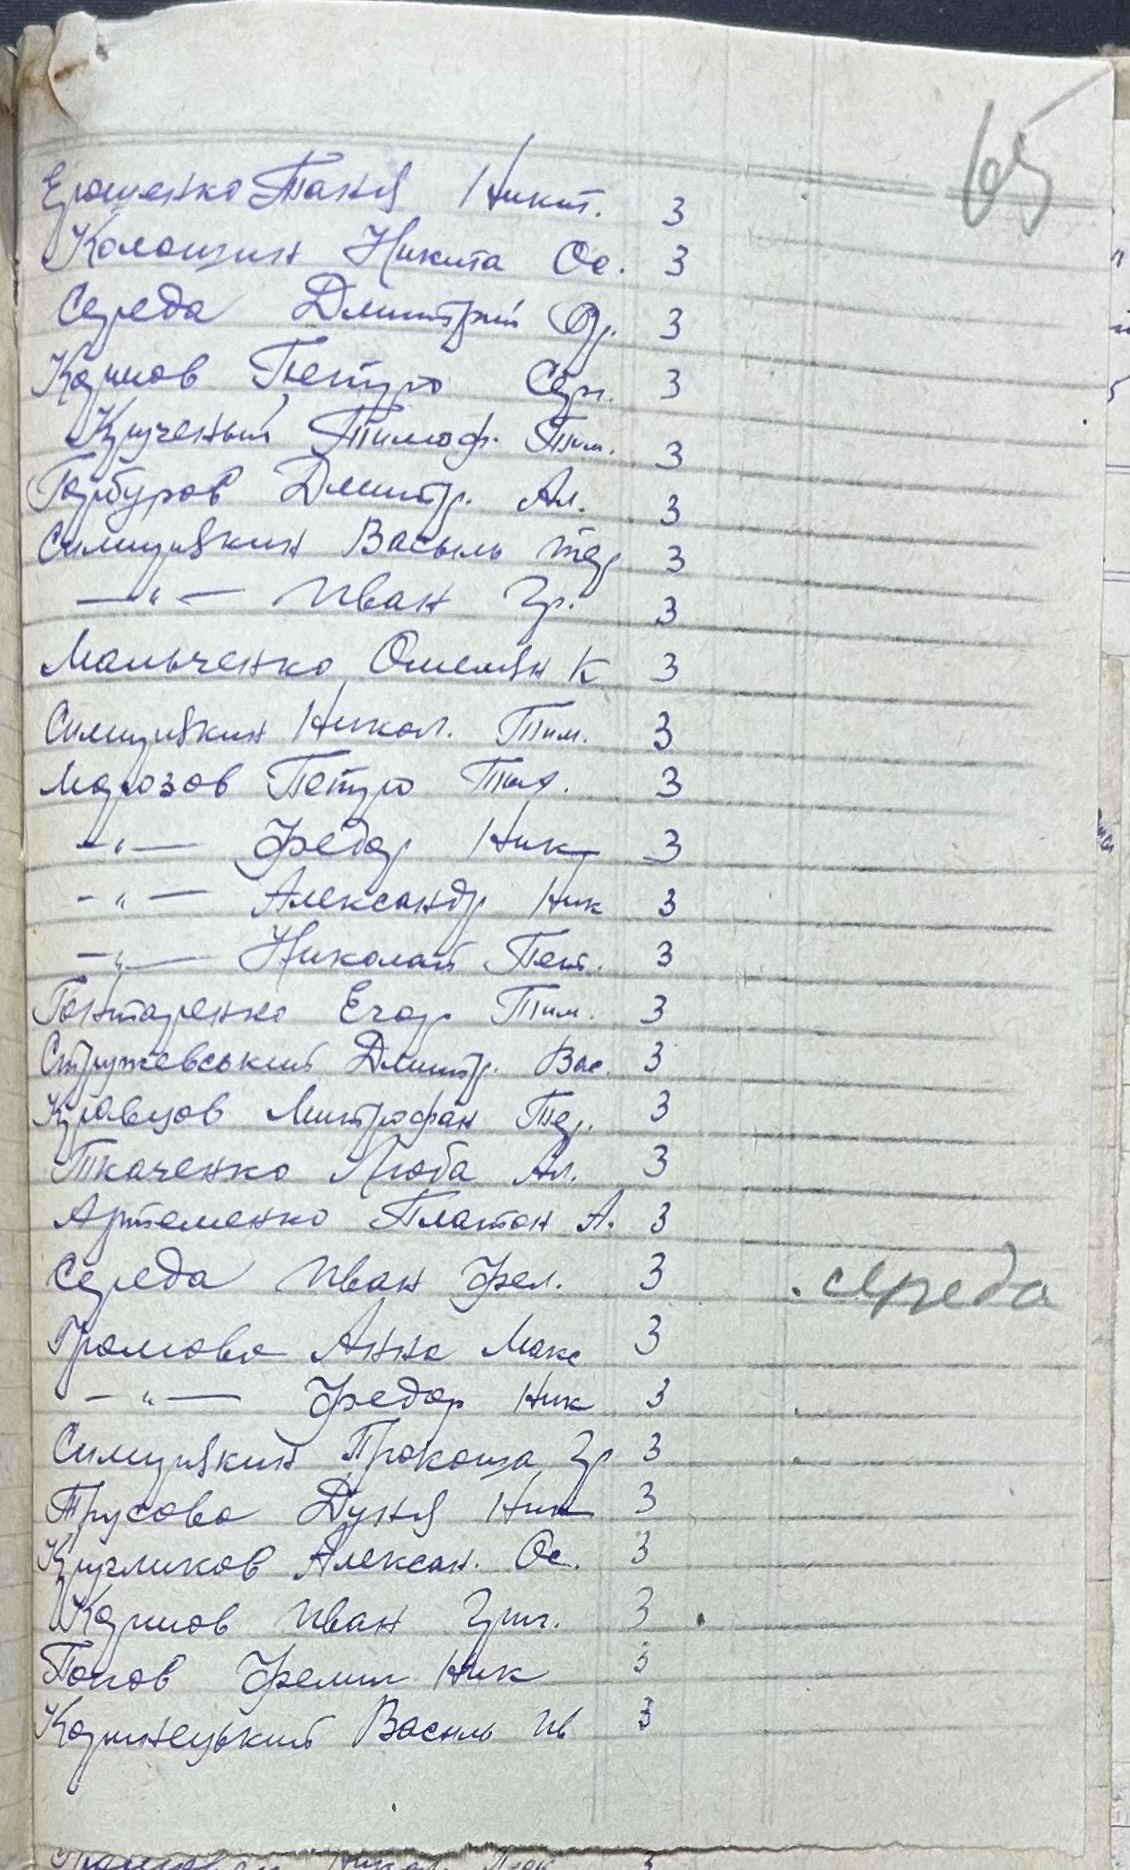 65
Ерошенко Таня Никит. 3
Колошин Никита Ос. 3
Середа Дмитрий Фр. 3
Карпов Петро Серг. 3
Крученый Тимоф. Тим. 3
Горбуров Дмитр. Ал. 3
Симицякин Василь 3
—"— Иван Гр. 3
Мальченко Омелян К 3
Симицякин Никол. Тим. 3
Морозов Петро 3
—"— Федор Ник 3
—"— Александр Ник 3
—"— Николай Пет. 3
Гонтаренко Егор Тим. 3
Стружевський Дмитр. Вас. 3
Кравцов Митрофан 3
Ткаченко Люба Ал. 3
Артеменко Платон А. 3
Середа Иван 3 середа
Громова Анна Макс 3
—"— Федор Ник 3
Симицякин Прокоша Гр 3
Трусова Дуня Ник 3
Алексан. Ос. 3
Карпов Иван Григ. 3
Попов Ник 3
Василь Ив 3